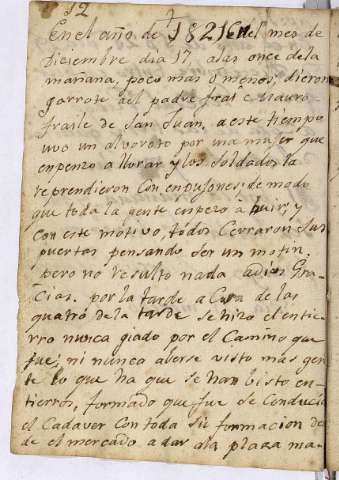 12
En el año de 1821 En el mes de
Diciembre dia 17, alas once dela
mañana, poco mas o menos, dieron
garrote ael padre frai Mauro
fraile de San Juan. a este tiempo
uvo un alvoroto por una mujer que
enpenzo a llorar y los soldados la
reprendieron con enpujones; de modo
que toda la gente enpezo à huir; y
con este motivo, todos Cerraron sus
puertas pensando ser un motin.
pero no resulto nada adios Gra-
cias. por la tarde a Cosa de las
quatro de la tarde se hizo el entie-
rro nunca giado por el Camino que
fue; ni nunca aberse visto más gen
te lo que ha que se han bisto en-
tierros, formado que fue se Conducia
el Cadaver Con toda su formacion des
de el mercado a dar ala plaza ma-